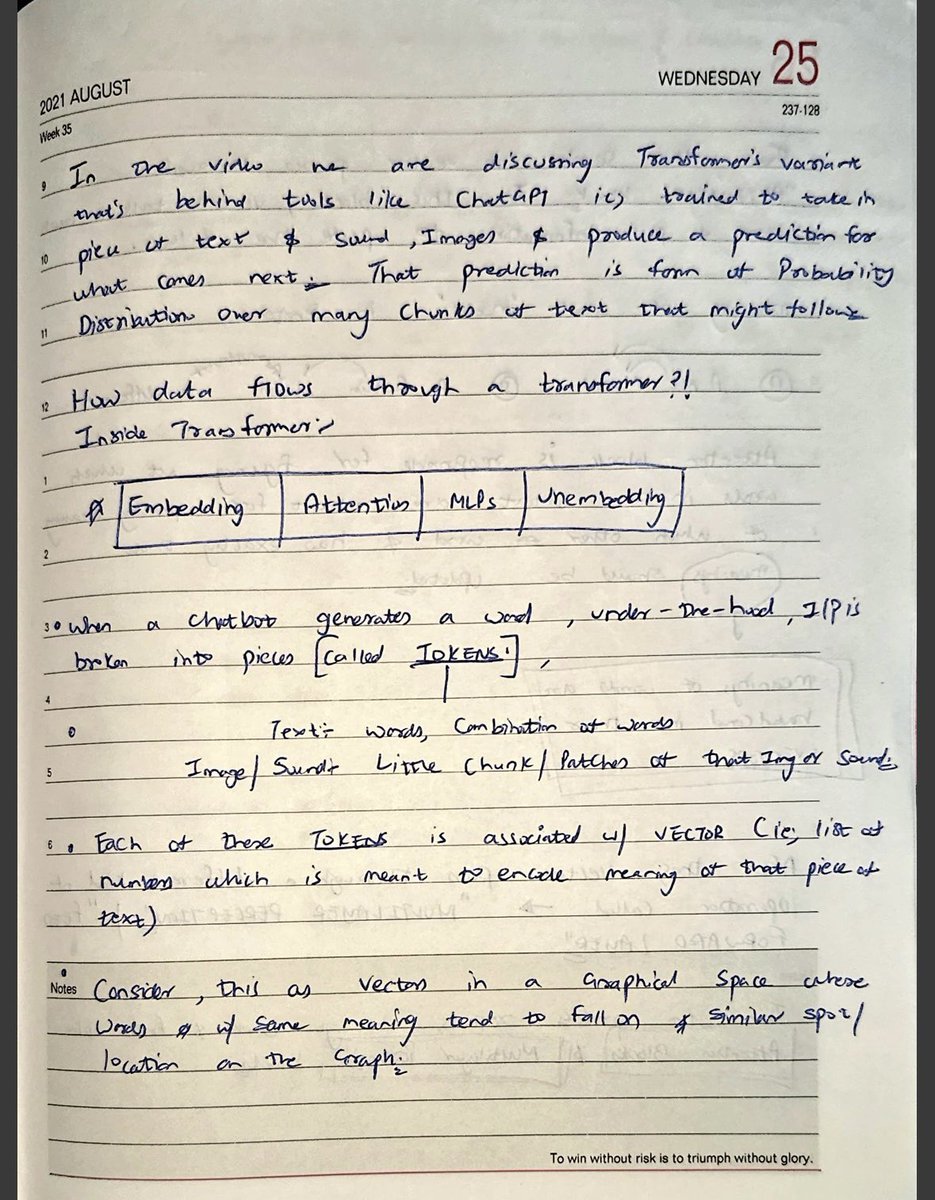 2021 AUGUST
WEDNESDAY 25
237-128
Week 35
9 In the video we are discussing Transformer's variant
that's behind tools like ChatGPT is, trained to take in
10 piece of text & sound, Images & produce a prediction for
what comes next. That prediction is form of Probability
11 Distribution over many Chunks of text that might follow
12 How data flows through a transformer?!
Inside Transformer:-
1 Embedding Attention MLPs Unembedding
2
3 When a chatbot generates a word, under-the-hood, I/P is
broken into pieces [Called TOKENS.],
4
Text:- words, Combination of words
5 Image/ Sound:- Little Chunk/ Patches of that Img or Sound.
6 Each of these TOKENS is associated w/ VECTOR (ie, list of
numbers which is meant to encode meaning of that piece of
text)
Notes Consider, this as Vectors in a Graphical Space where
words w/ same meaning tend to fall on similar spot/
location on the Graph.
To win without risk is to triumph without glory.